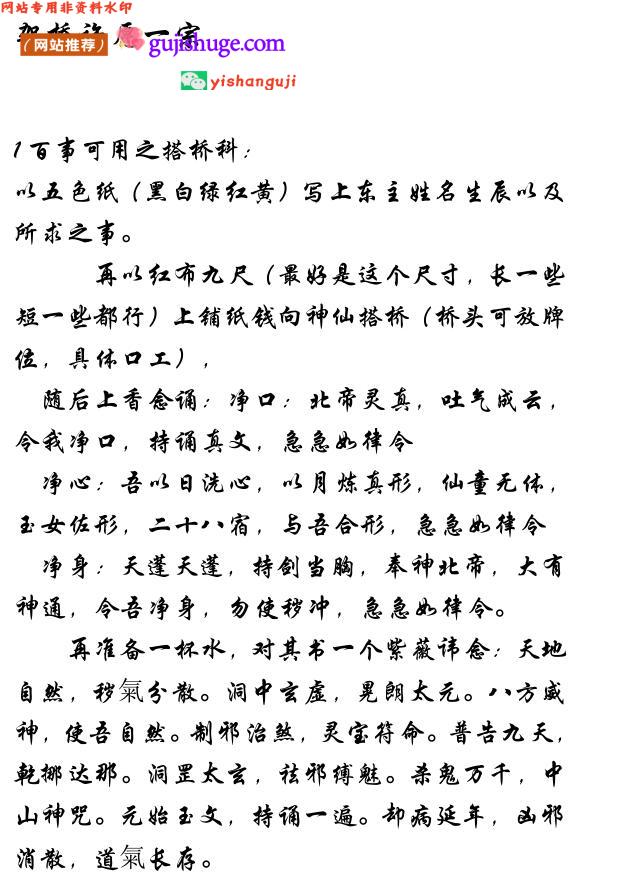 网站专用非资料水印
（网站推荐） gujishuge.com
yishanguji
1百事可用之搭桥科：
以五色纸（黑白绿红黄）写上东主姓名生辰以及
所求之事。
再以红布九尺（最好是这个尺寸，长一些
短一些都行）上铺纸钱向神仙搭桥（桥头可放牌
位，具体口工），
随后上香念诵：净口：北帝灵真，吐气成云，
令我净口，持诵真文，急急如律令
净心：吾以日洗心，以月炼真形，仙童无体，
玉女佐形，二十八宿，与吾合形，急急如律令
净身：天蓬天蓬，持剑当胸，奉神北帝，大有
神通，令吾净身，勿使秽冲，急急如律令。
再准备一杯水，对其书一个紫薇讳念：天地
自然，秽氣分散。洞中玄虚，晃朗太元。八方威
神，使吾自然。制邪治煞，灵宝符命。普告九天，
乾挪达那。洞罡太玄，祛邪缚魅。杀鬼万千，中
山神咒。元始玉文，持诵一遍。却病延年，凶邪
消散，道氣长存。